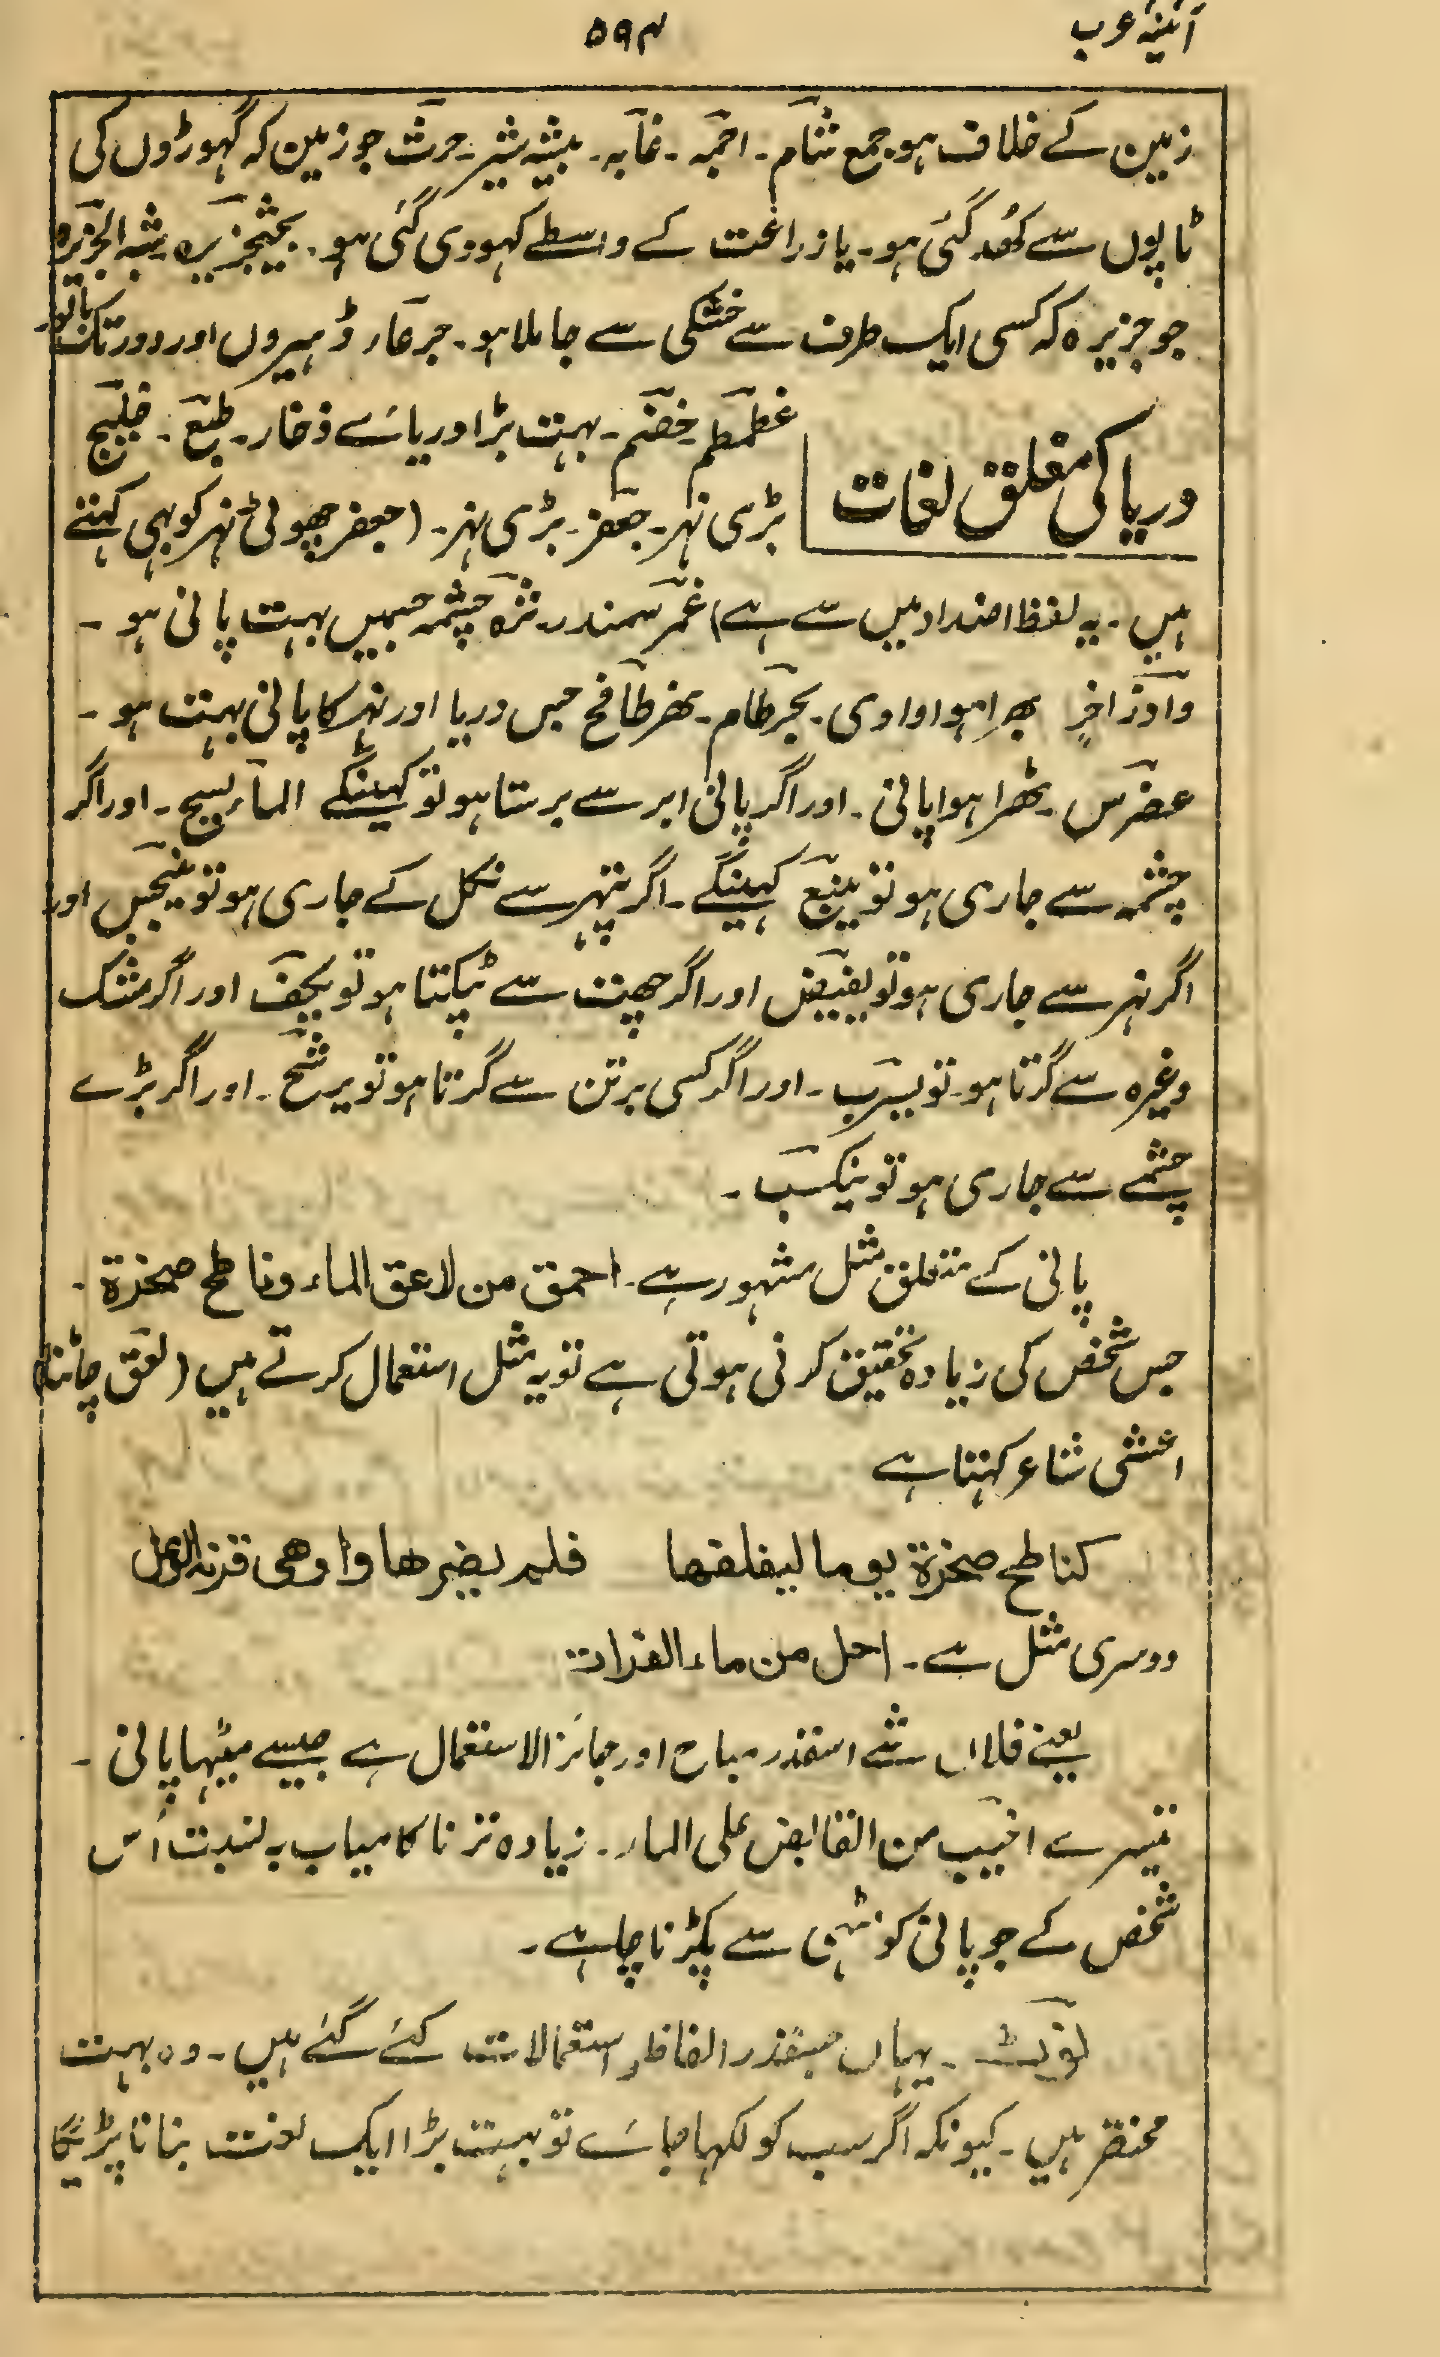 آئینۂ عرب ۵۹۴
زمین کے خلاف ہو۔ جمع شام۔ اجمہ۔ غابہ۔ بیشہ شیر۔ حرث جو زمین کہ گہوڑوں کی
ٹاپوں سے کھد گئی ہو۔ یا زراعت کے واسطے کہودی گئی ہو۔ جزیرہ شبہ الجزیرہ
جو جزیرہ کہ کسی ایک طرف سے خشکی سے جا ملا ہو۔ اور دور تک
دریا کی مغلق لغات
غطمطم خضم۔ بہت بڑا دریائے ذخار۔ طبع۔ خلیج
بڑی نہر۔ جعفر۔ بڑی نہر۔ (جعفر چھوٹی نہر کو بہی کہتے
ہیں۔ یہ لفظ اضداد میں سے ہے) غمر سمندر۔ ثرہ چشمہ جسمیں بہت پانی ہو۔
واد زاخر بھرا ہوا وادی۔ بحر طام۔ نھر طافح جس دریا اور نہر کا پانی بہت ہو۔
عضرس۔ ٹھرا ہوا پانی۔ اور اگر پانی ابر سے برستا ہو تو کہینگے الماء یسح۔ اور اگر
چشمہ سے جاری ہو تو ینبع کہینگے۔ اگر پتہر سے نکل کے جاری ہو تو ینبجس اور
اگر نہر سے جاری ہو تو یفیض اور اگر چھت سے ٹپکتا ہو تو یکف اور اگر مشک
وغیرہ سے گرتا ہو۔ تو یسرب۔ اور اگر کسی برتن سے گرتا ہو تو یرشح۔ اور اگر بڑے
چشمے سے جاری ہو تو ینکسب۔
پانی کے متعلق مثل مشہور ہے۔ احمق من لاعق الماء وناطح صخرۃ۔
جس شخص کی زیادہ تحقیق کرنی ہوتی ہے تو یہ مثل استعمال کرتے ہیں (لعق چاٹنا)
اعشی شاعر کہتا ہے
کناطح صخرۃ یوما لیفلقھا فلم یضرھا واوھی قرنہ الوعل
دوسری مثل ہے۔ احل من ماء الفرات
یعنے فلاں شے اسقدر مباح اور جائز الاستعمال ہے جیسے میٹہا پانی۔
تیسرے اخیب من القابض علی الماء۔ زیادہ تر ناکامیاب بہ نسبت اُس
شخص کے جو پانی کو مٹہی سے پکڑنا چاہے۔
نوٹ۔ یہاں جسقدر الفاظ و استعمالات کئے گئے ہیں۔ وہ بہت
مختصر ہیں۔ کیونکہ اگر سب کو لکہا جائے تو بہت بڑا ایک لغت بنانا پڑیگا